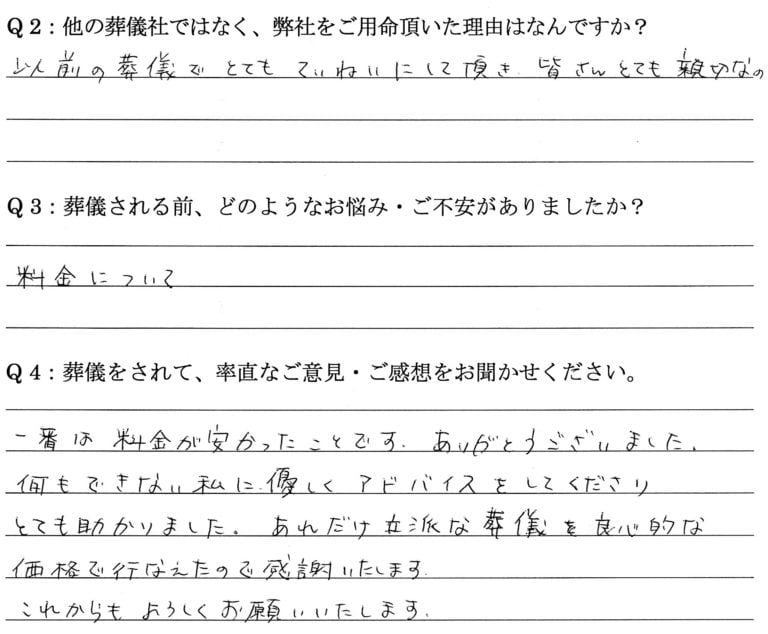 Q2：他の葬儀社ではなく、弊社をご用命頂いた理由はなんですか？
以前の葬儀でとてもていねいにして頂き 皆さんとても親切なの
Q3：葬儀される前、どのようなお悩み・ご不安がありましたか？
料金について
Q4：葬儀をされて、率直なご意見・ご感想をお聞かせください。
一番は料金が安かったことです。ありがとうございました。
何もできない私に優しくアドバイスをしてくださり
とても助かりました。あれだけ立派な葬儀を良心的な
価格で行なえたので感謝いたします。
これからもよろしくお願いいたします。